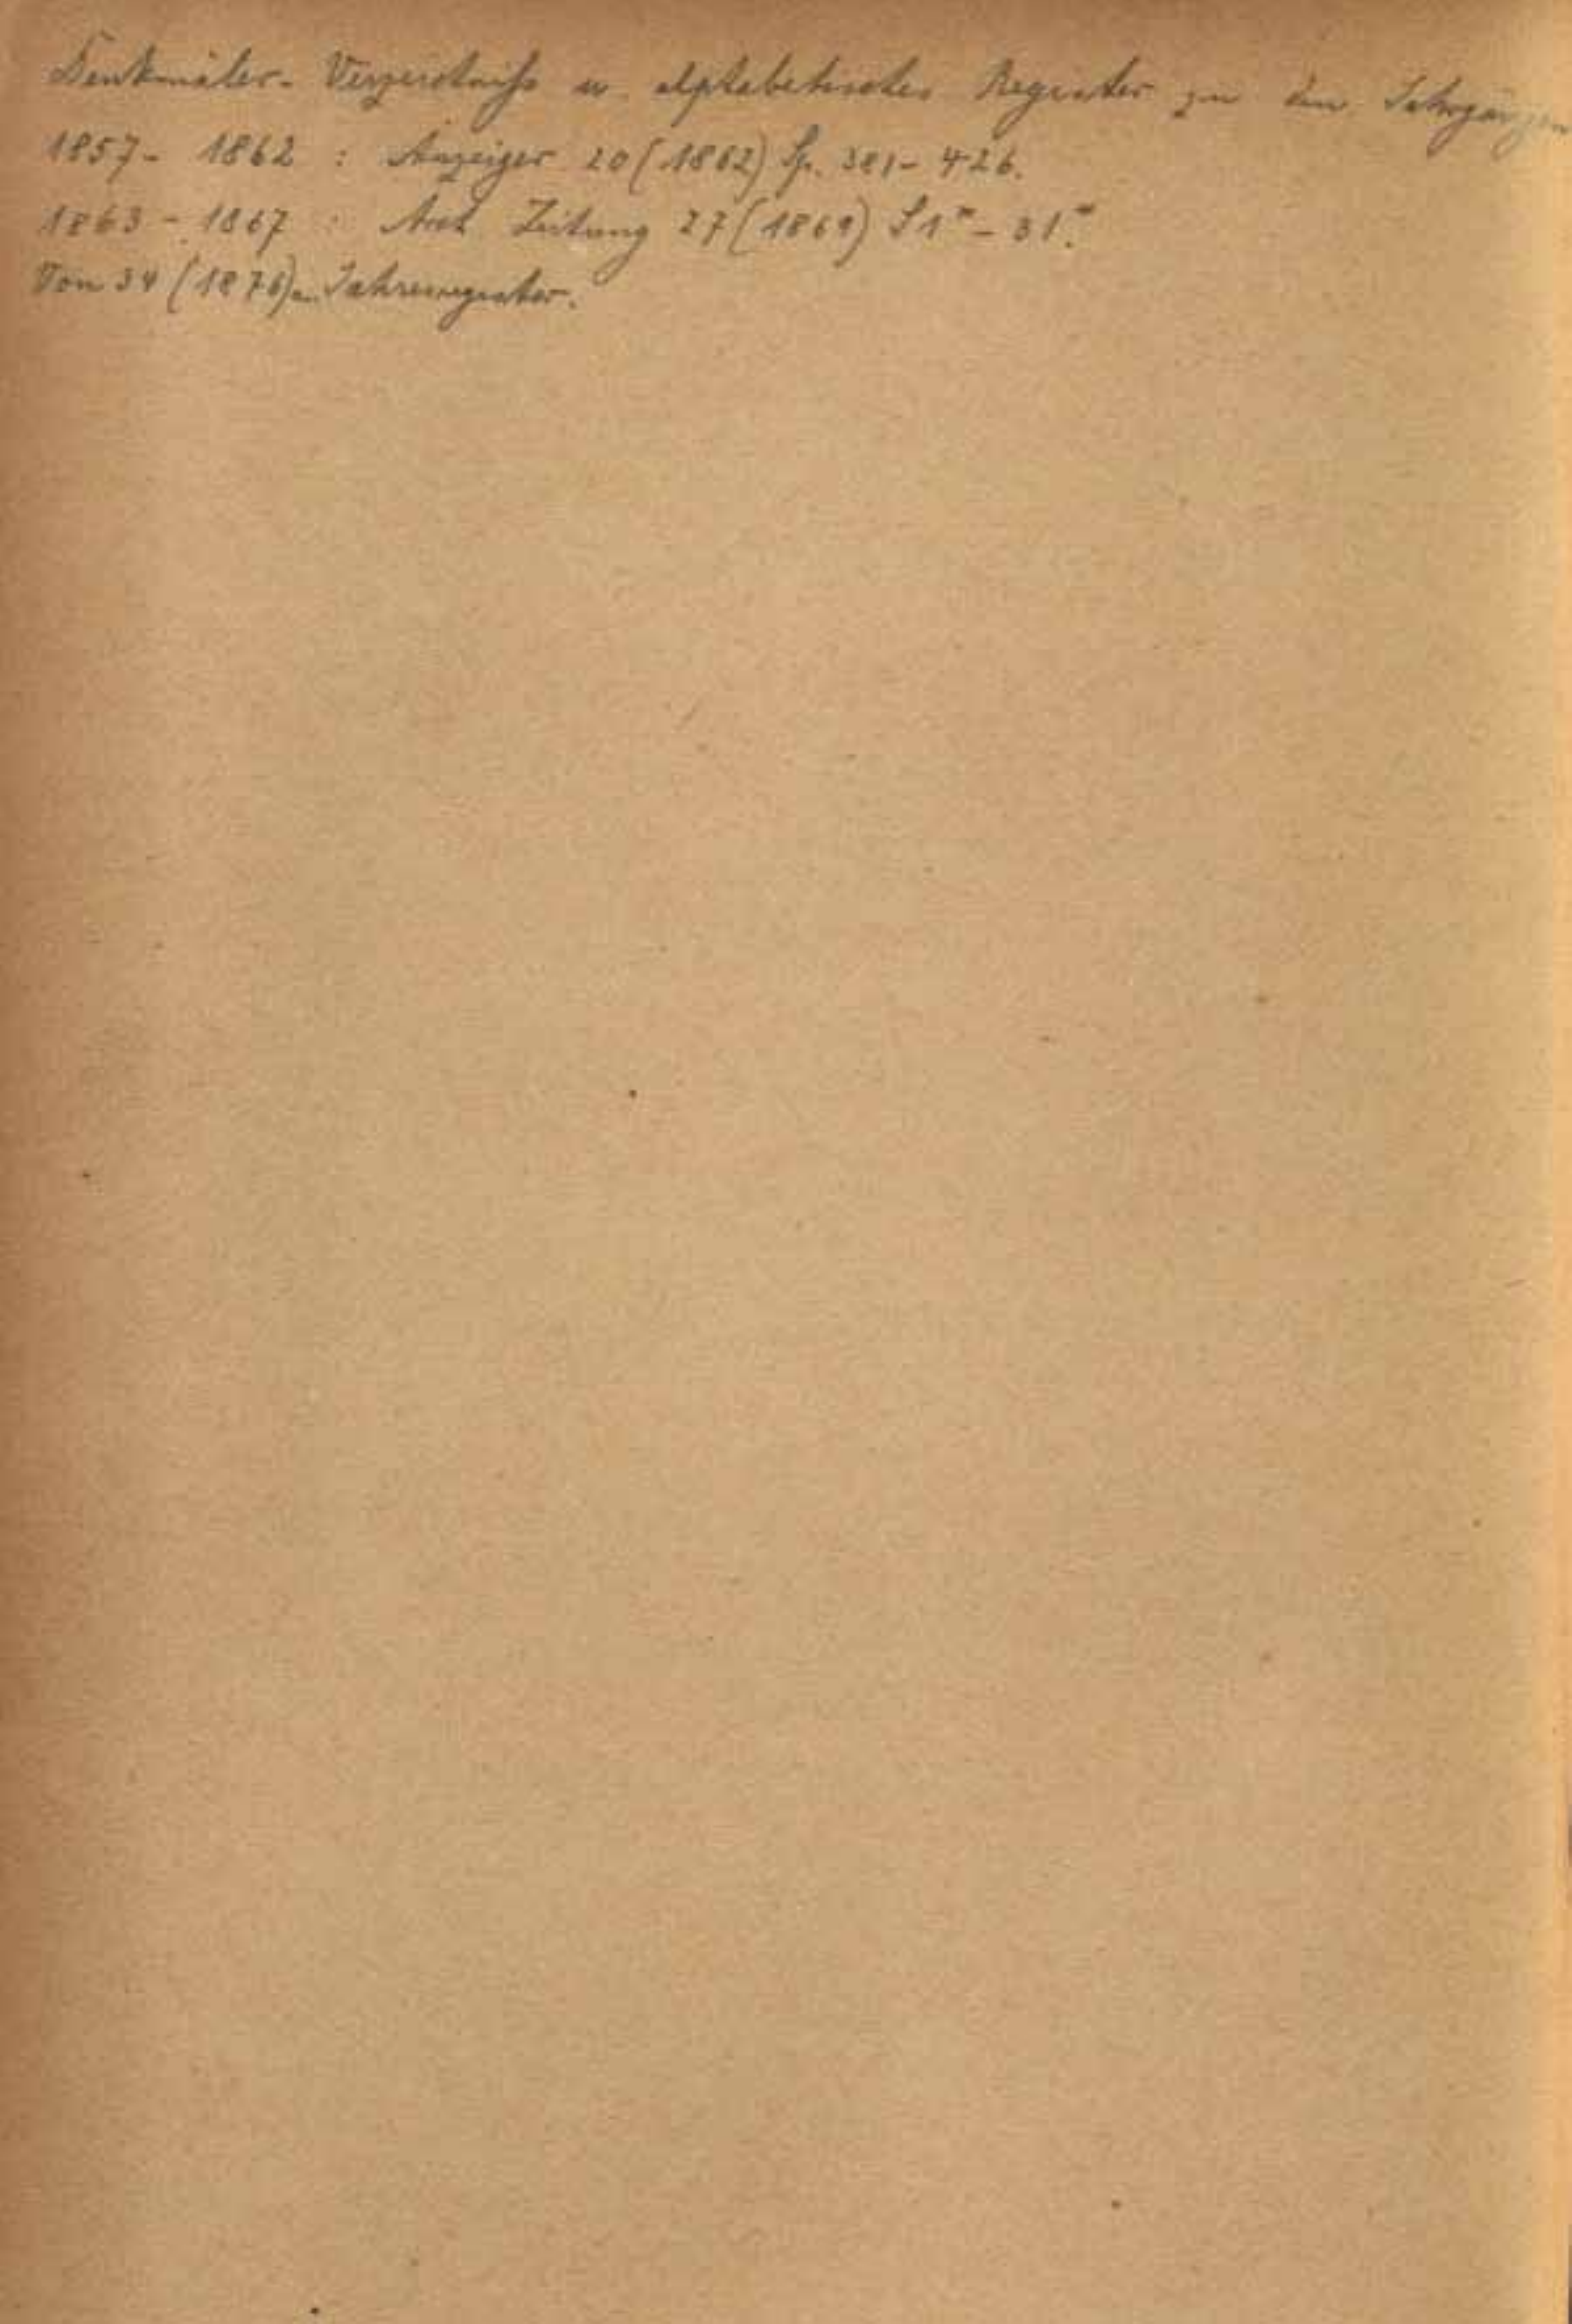 Denkmäler-Verzeichniß u. alphabetisches Register zu den Jahrgängen
1857-1862 : Anzeiger 20 (1862) Sp. 381-426.
1863-1867 : Arch Zeitung 27 (1869) S 1*-31*.
Von 34 (1876) an Jahresregister.